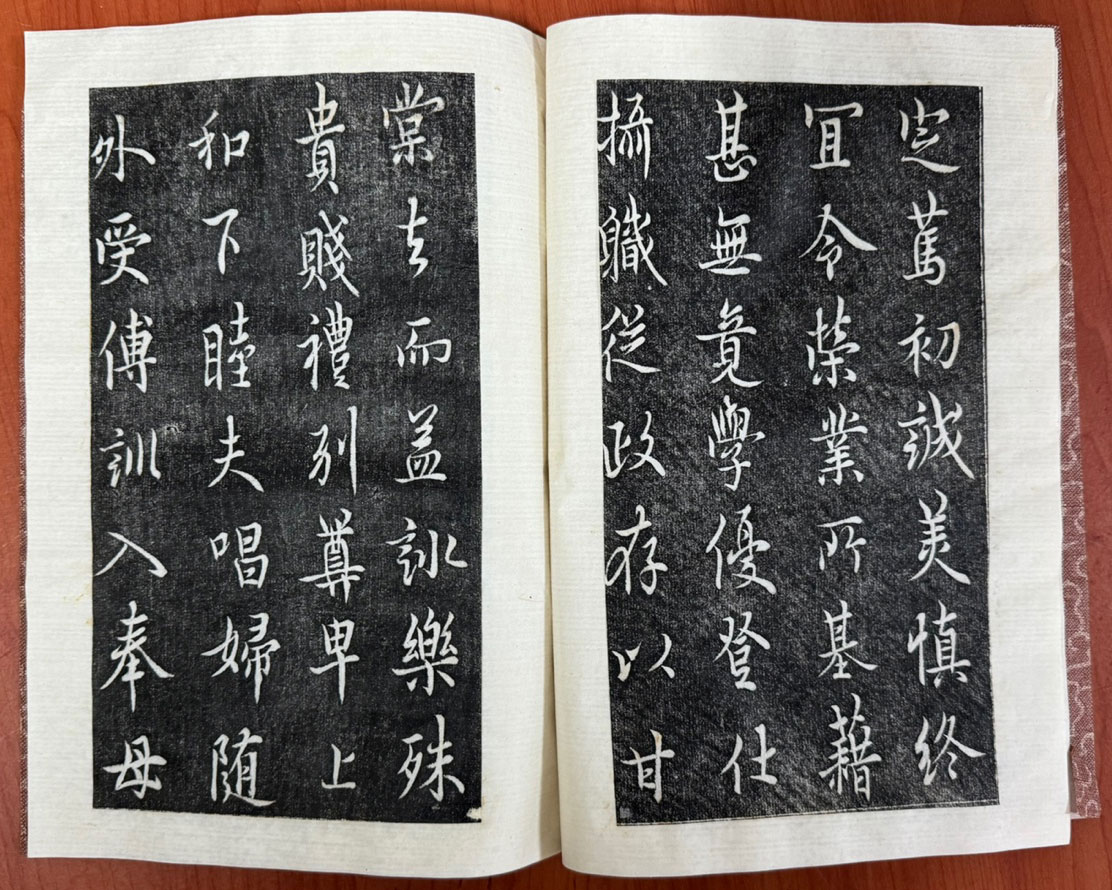 定篤初誠美慎終
宜令榮業所基藉
甚無竟學優登仕
攝職從政存以甘
棠去而益詠樂殊
貴賤禮別尊卑上
和下睦夫唱婦随
外受傅訓入奉母